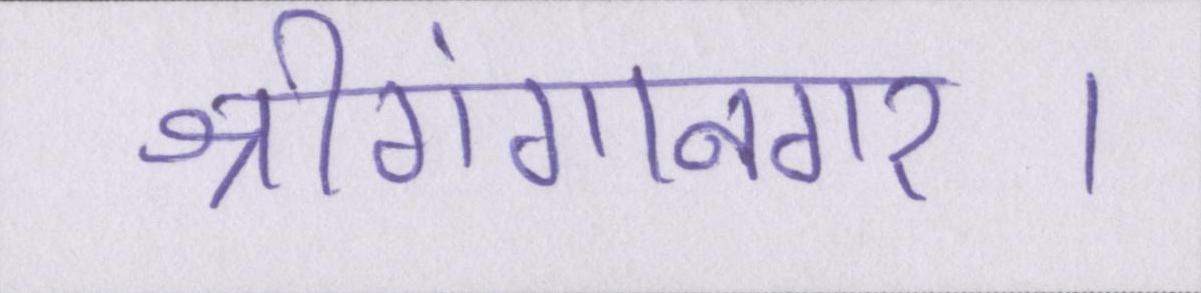 श्रीगंगानगर ।